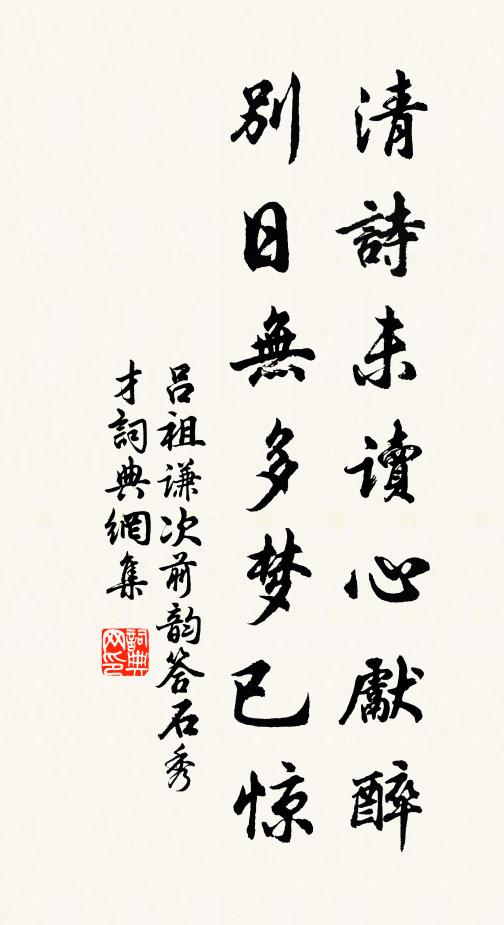 清詩未讀心獻醉
別日無多梦已惊
吕祖谦次前韵答石秀
才詞典網集
詞典网印